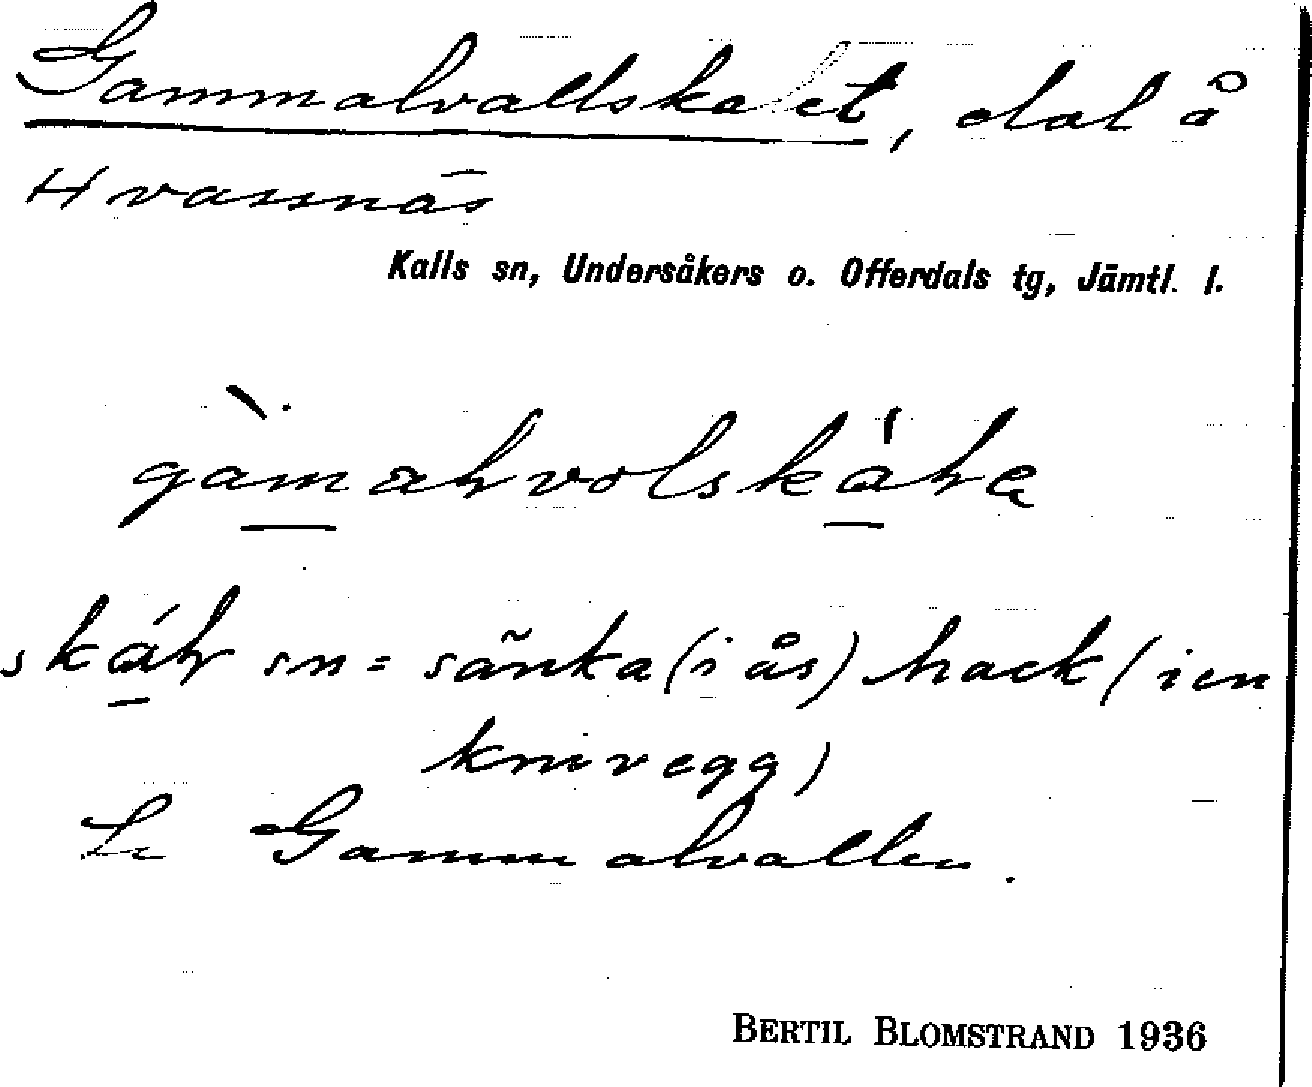 Gammalvallskalet, dal å
Hvassnäs
Kalls sn, Undersåkers o. Offerdals tg, Jämtl. l.
sn = sänka (i ås) hack (i en
knivegg)
Se Gammalvallen.
BERTIL BLOMSTRAND 1936